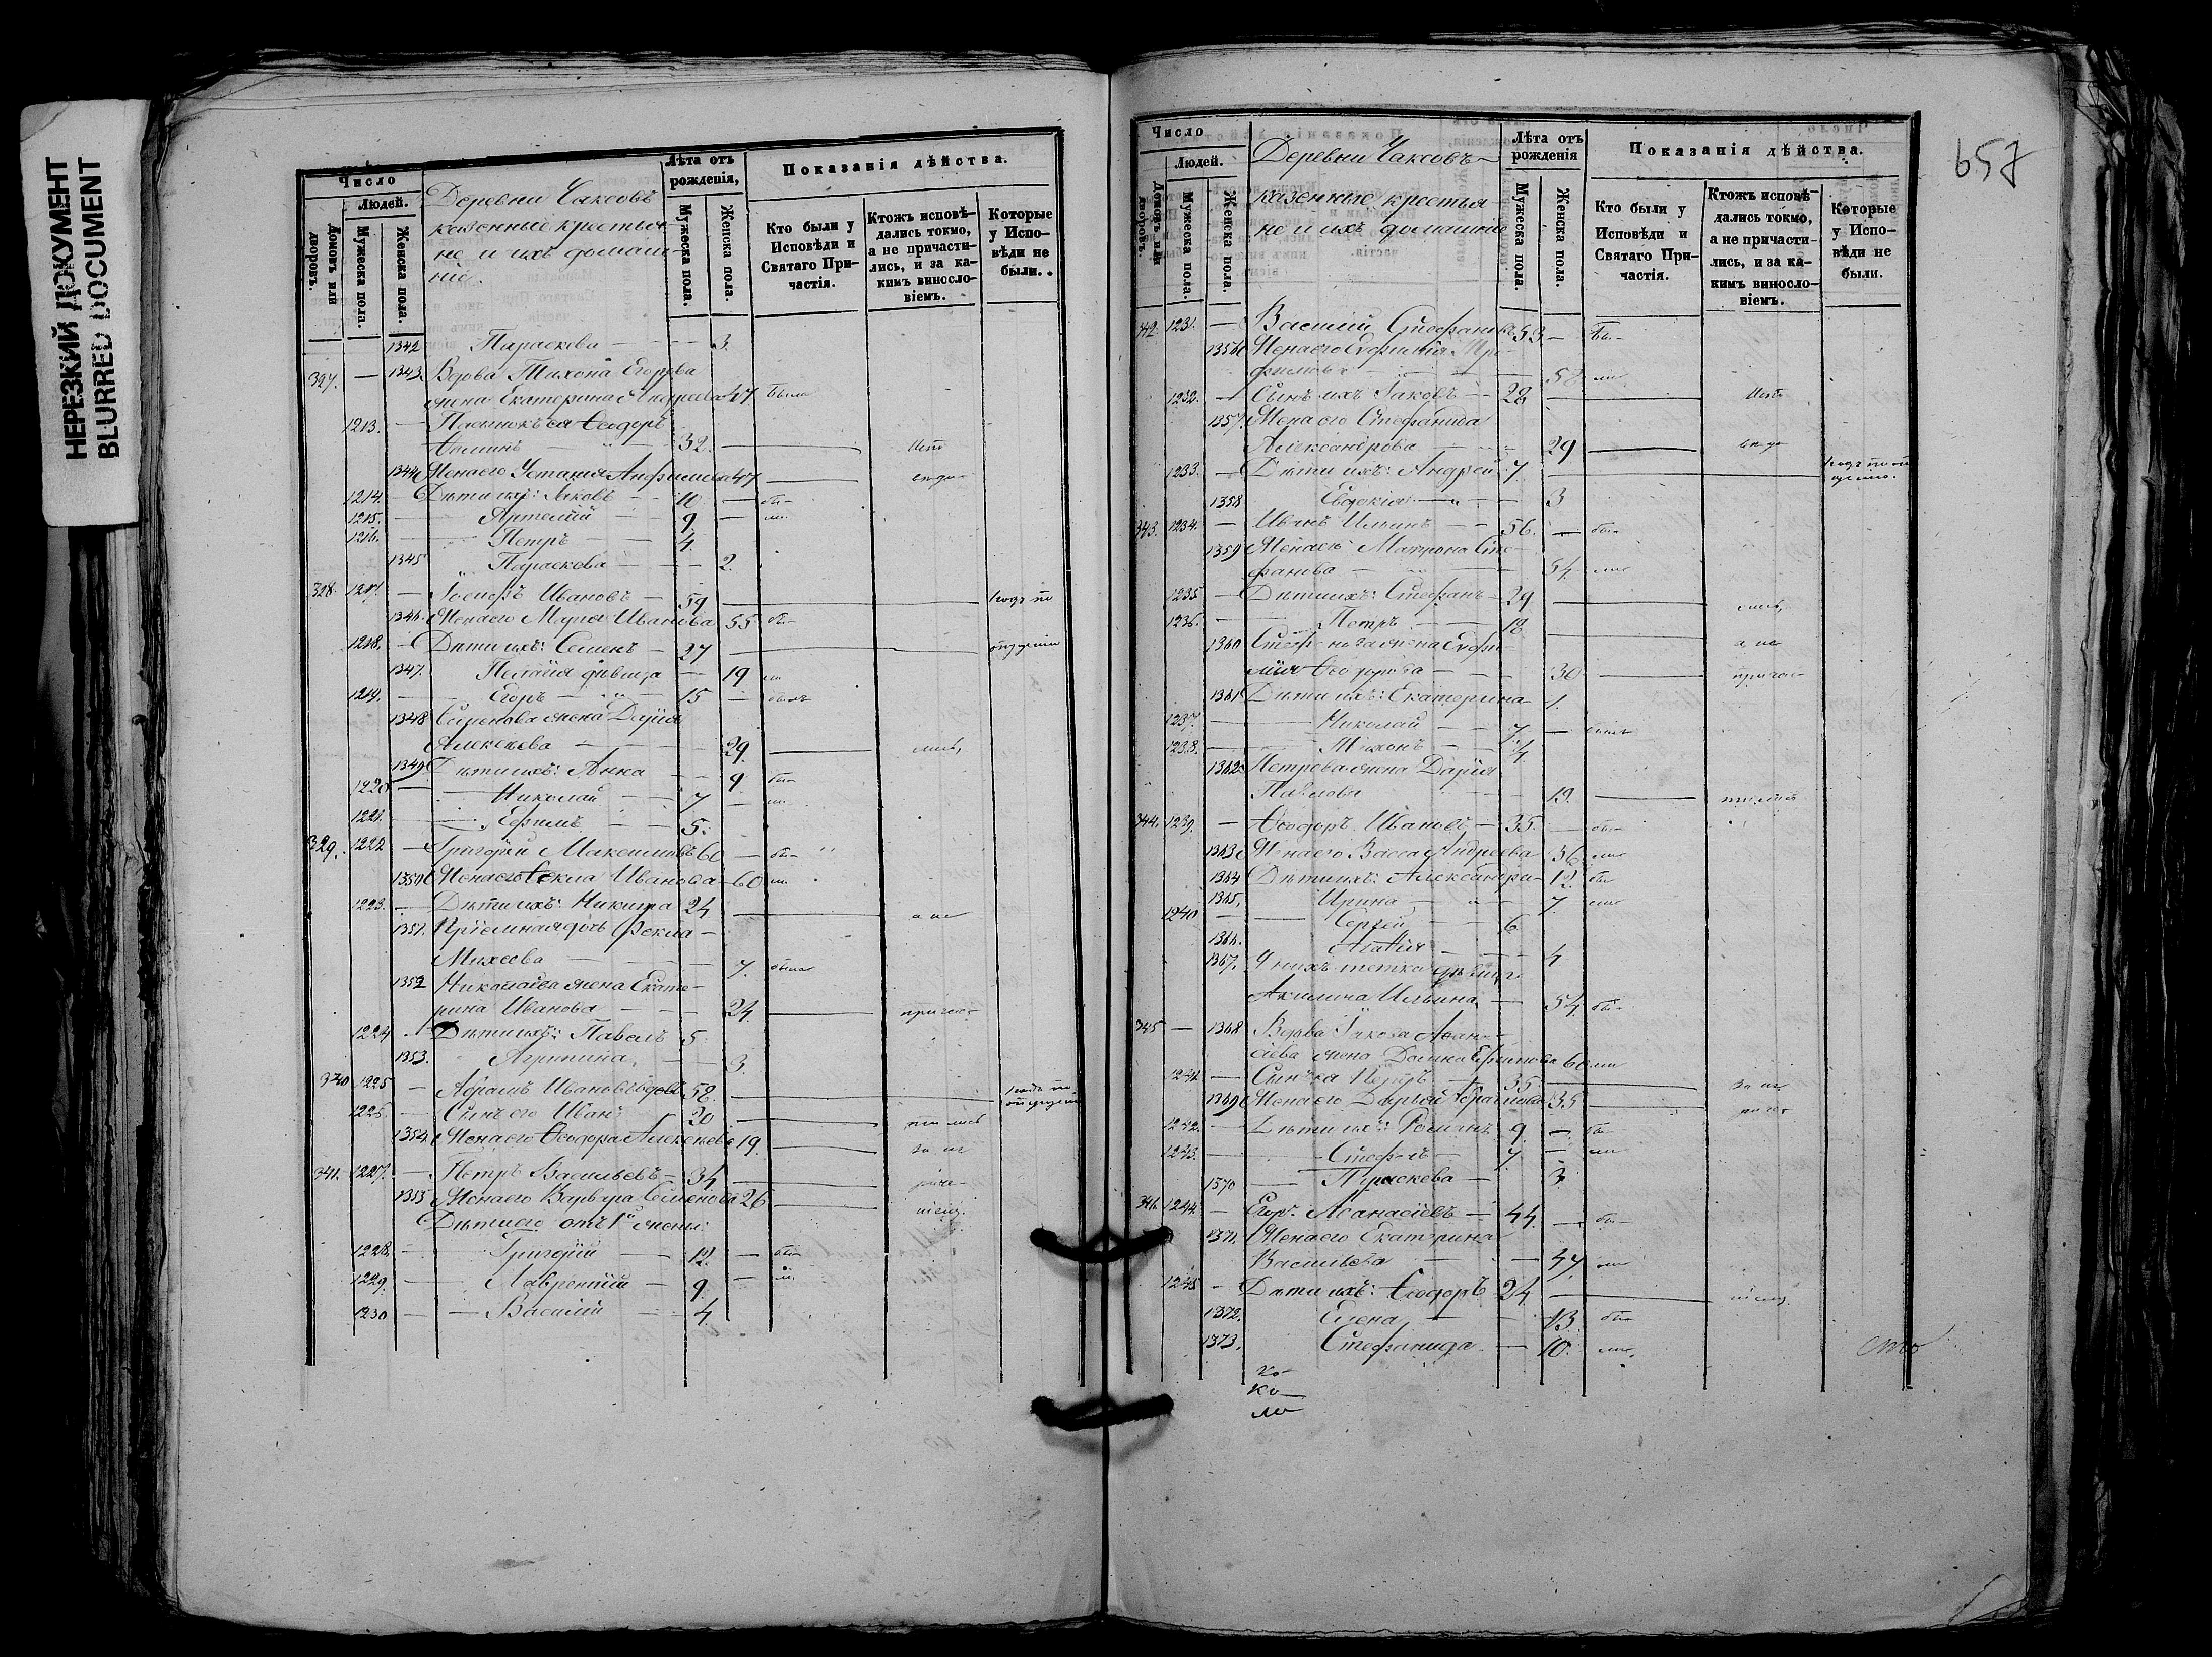 НЕРЕЗКИЙ ДОКУМЕНТ
BLURRED DOCUMENT
Число
Людей.
Домовъ или дворовъ.
Мужеска пола.
Женска пола.
Деревни Чаксовъ
казенные крестья
не и ихъ домаш
ніе.
Лѣта отъ рожденія,
Мужеска пола.
Женска пола.
Показанія дѣйства.
Кто были у Исповѣди и Святаго Причастія.
Ктожъ исповѣдались токмо, а не причастились, и за какимъ винословіемъ.
Которые у Исповѣди не были.
1342 Параскева — 3.
327. — 1343 Вдова Тихона Егорова
жена Екатерина Андреева 47 была
1213. — Пасынокъ ея Ѳеодоръ
32. —
1344 Жена его Анфимова 47 —
1214. — Дѣти ихъ: Іаковъ — бы-
1215. — Артемій — 9. — ли
1216. — Петръ — 4.
1345 Параскева — 2.
328. 1217. — Іосифъ Ивановъ — 59 —
1346. Жена его Марія Иванова 55 бы-
1218. — Дѣти ихъ: Семенъ — 27 —
1347. Пелагія дѣвица — 19 ли
1219. — Егоръ — 15 —
1348 Семенова жена Дарія
Алексѣева — 29. —
1349 Дѣти ихъ: Анна — 9 бы-
1220 — Николай — 7 — ли
1221. — Ефимъ — 5.
329. 1222 — Григорій Максимовъ 60 — бы-
1350 Жена его Ѳекла Иванова 60 ли
1223. — Дѣти ихъ: Никита 24 — а не
1351. Пріемная дочь Фекла
Михеева — 7. была
1352 Николаева жена Екате-
рина Иванова — 24. — причас-
1224 — Дѣти ихъ: Павелъ 5.
1353. Агрипина — 3.
340 1225 — Абрамъ Ивановъ вдовъ 58. —
1226. — Сынъ его Иванъ 20 — тились
1354 Жена его Ѳеодора Алексѣева 19. — за не
341. 1227. — Петръ Васильевъ — 34 —
1355 Жена его Варвара Семенова 26 —
Дѣти его отъ 1й жены:
1228. — Григорій — 12. — бы-
1229. — Лаврентій — 9. — ли
1230 — Василій — 4.
657
Число
Людей.
Домовъ или дворовъ.
Мужеска пола.
Женска пола.
Деревни Чаксовъ
казенные крестья
не и ихъ домашніе
Лѣта отъ рожденія
Мужеска пола.
Женска пола.
Показанія дѣйства.
Кто были у Исповѣди и Святаго Причастія.
Ктожъ исповѣдались токмо, а не причастились, и за какимъ винословіемъ.
Которые у Исповѣди не были.
342. 1231. — Василій Стефановъ 53 — бы-
1356 Жена его Евфимія Тро-
фимова — 58 ли
1232. — Сынъ ихъ Іаковъ — 28 — Испо-
1357. Жена его Стефанида
Александрова — 29 — вѣда-
1233. — Дѣти ихъ: Андрей 7. —
1358 Евдокія — 3
343. 1234. — Иванъ Ильинъ — 56. — бы-
1359 Жена его Матрона Сте-
фанова — 54. ли
1235 — Дѣти ихъ: Стефанъ 29 — лись,
1236. — Петръ — 18 —
1360 Стефанова жена Евфи-
мія Ѳеодорова — 30 — причас-
1361 Дѣти ихъ: Екатерина 1.
1237. — Николай — 7. —
1238. — Тихонъ — 4
1362 Петрова жена Дарія
Павлова — 19. — тились
344. 1239. — Ѳеодоръ Ивановъ — 35. — бы-
1363 Жена его Васса Андреева 36 ли
1364 Дѣти ихъ: Александра 12. бы-
1365. Ирина — 7. ли
1240 — Сергей — 6
1366. Агафія — 4
1367. У нихъ тетка дѣвица
Акилина Ильина — 54 бы-
345 — 1368 Вдова Іакова Аѳан-
сіева жена Домна Ефимова 60 ли
1241 — Сынъ ея Петръ 35. — за не
1369 Жена его Дарья Абрамова 35 —
1242. — Дѣти ихъ: Романъ 9. — бы-
1243. — Стефанъ — 7. — ли
1370 — Параскева — 3.
346. 1244. — Егоръ Аѳанасіевъ — 44. — бы-
1371. Жена его Екатерина
Васильева — 47. ли
1245 — Дѣти ихъ: Ѳеодоръ 24 —
1372. Елена — 13. бы-
1373. Стефанида — 10. ли.